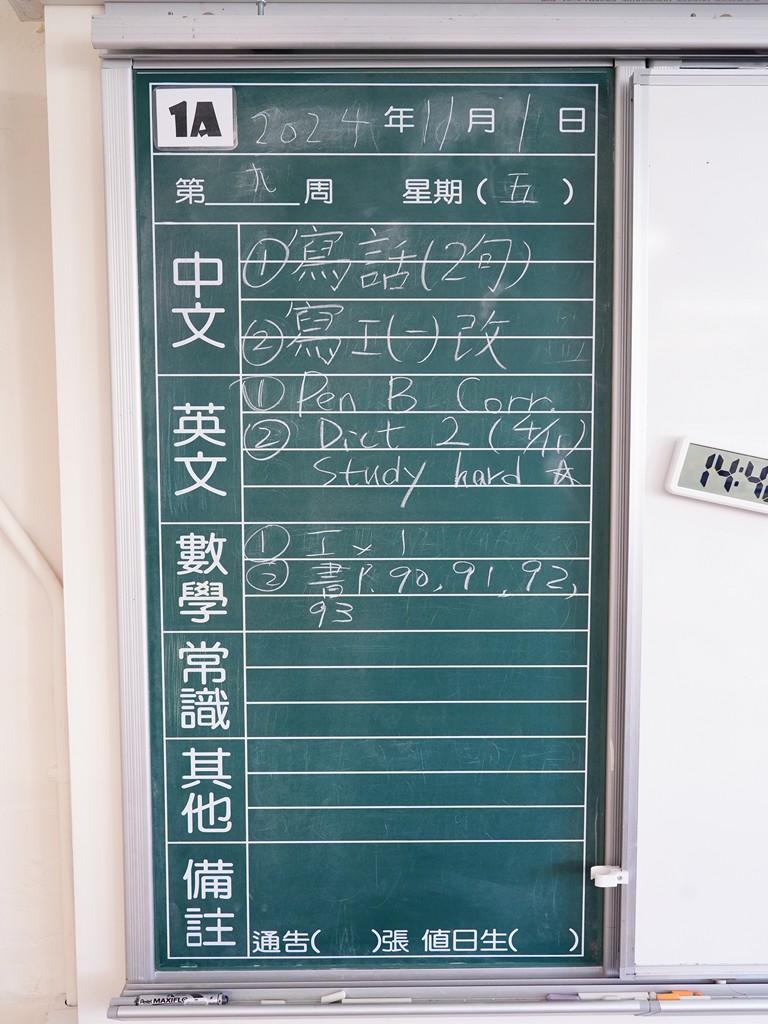 1A 2024年11月1日
第九周 星期(五)
中文
①寫話(2句)
②寫工(一)改
英文
① Pen B Corr.
② Dict 2 (4/11)
Study hard ☆
數學
① 工 x 1
② 書 P. 90, 91, 92,
93
常識
其他
備註
通告( )張 值日生( )
Pentel MAXIFLO